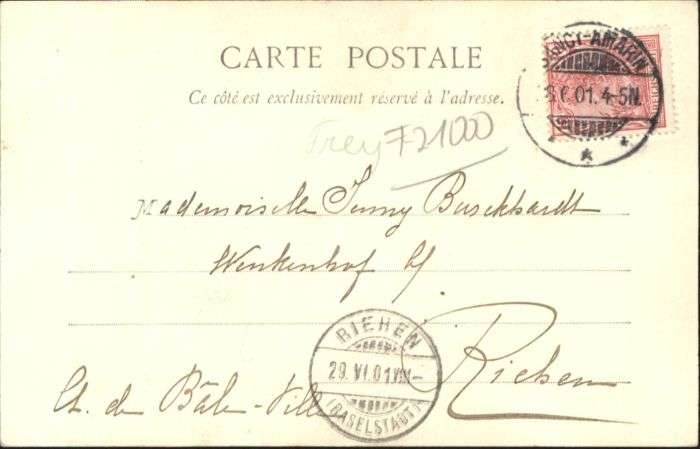 CARTE POSTALE
Ce côté est exclusivement réservé à l'adresse.
SANCT-AMARIN
01. 4-5N.
Frey 721000
Mademoiselle Jenny Burckhardt
Wenkenhof b/
Riehen
Ct. de Bâle-Ville
RIEHEN
29. VI. 01 VIII-
(BASELSTADT)